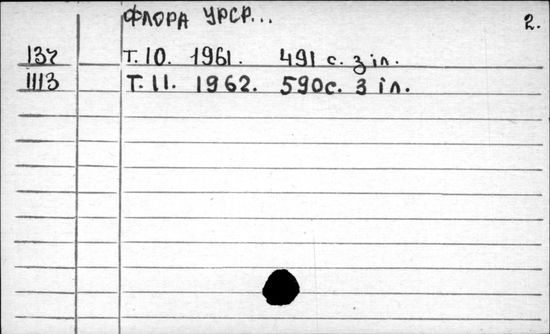 ФЛОРА УРСР...
2.
137 Т. 10. 1961. 491 с. з іл.
1113 Т. 11. 1962. 590с. з іл.